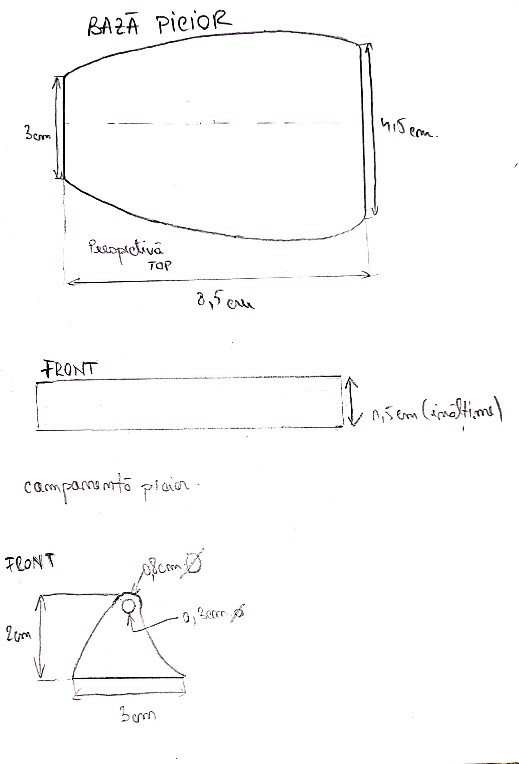 BAZĂ PICIOR
3cm
4,5cm.
Perspectivă
TOP
8,5cm
FRONT
1,5cm (înălțime)
componentă picior.
FRONT
0,8cm Ø
2cm
0,3cm ø
3cm